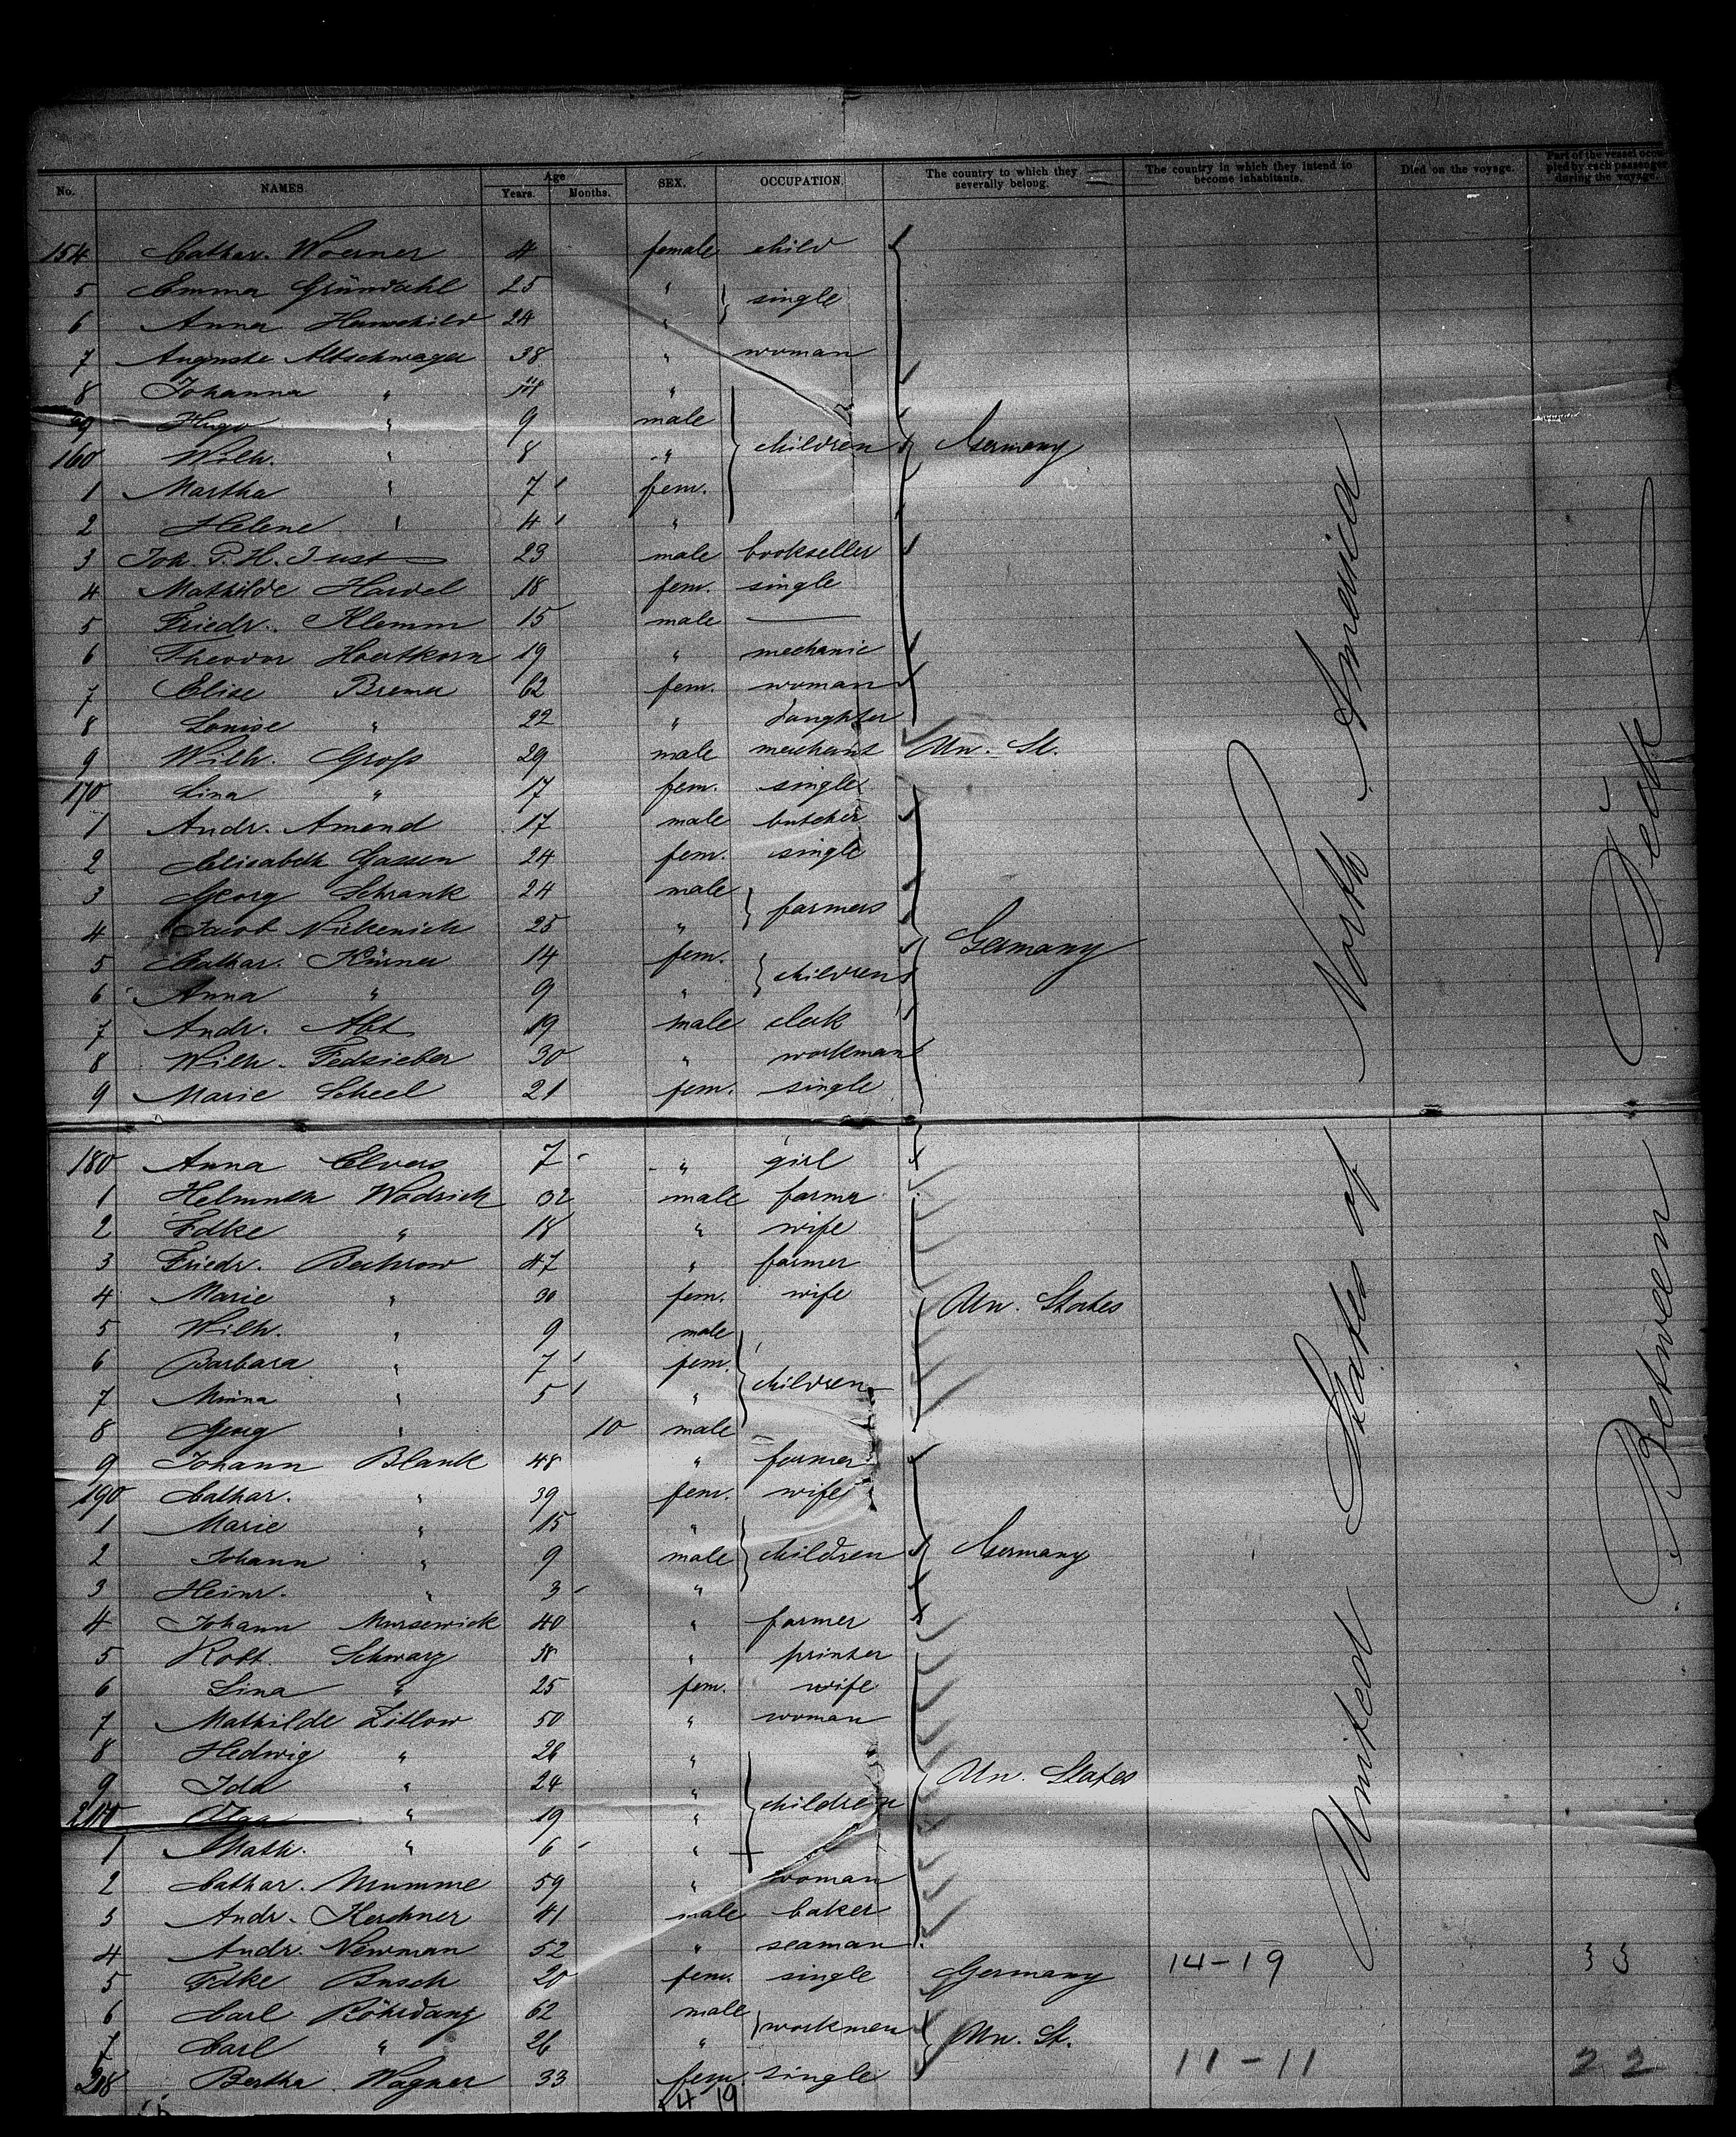 No. NAMES. Age Years. Months. SEX. OCCUPATION. The country to which they severally belong. The country in which they intend to become inhabitants. Died on the voyage. Part of the vessel occupied by each passenger during the voyage.
154 Cathar. Woerner 4 female child
5 Emma Gründahl 25 " } single
6 Anna Hanschild 24 "
7 Auguste Altschwager 38 " woman
8 Johanna " "
9 Hugo " 9 male
160 Wilh. " 8 " } children } Germany
1 Martha " 7 fem.
2 Helene " 4 "
3 Joh. P. H. Just 23 male bookseller
4 Mathilde Hardel 18 fem. single
5 Friedr. Klemm 15 male —
6 Theodor Hoertkorn 19 " mechanic
7 Elise Bremer 62 fem. woman
8 Louise " 22 " daughter
9 Wilh. Groß 29 male merchant Un. St.
170 Lina " 17 fem. single
1 Andr. Amend 17 male butcher
2 Elisabeth Gassen 24 fem. single
3 Georg Schrank 24 male } farmers
4 Jacob Nickenich 25 " } Germany
5 Cathar. Kürner 14 fem. } children
6 Anna " 9 "
7 Andr. Abt 19 male clerk
8 Wilh. Fedsieber 30 " workman
9 Marie Scheel 21 fem. single
180 Anna Elvers 7 " girl
1 Helmuth Wodrich 32 male farmer
2 Fdke " 18 " wife
3 Friedr. Bechrow 47 " farmer
4 Marie " 30 fem. wife } Un. States
5 Wilh. " 9 male
6 Barbara " 7 fem. } children
7 Minna " 5 "
8 Georg " 10 male
9 Johann Blank 48 " farmer
190 Cathar. " 39 fem. wife
1 Marie " 15 "
2 Johann " 9 male } children } Germany
3 Heinr. " 3 "
4 Johann Mursewick 40 " farmer
5 Robt. Schwarz 38 " printer
6 Lina " 25 fem. wife
7 Mathilde Zitlow 50 " woman
8 Hedwig " 26 "
9 Ida " 24 " } children } Un. States
200 Olga " 19 "
1 Math. " 6 "
2 Cathar. Mumme 59 " woman
3 Andr. Kerchner 41 male baker
4 Andr. Newman 52 " seaman
5 Fdke Busch 20 fem. single Germany 14-19 33
6 Carl Röhrdanz 62 male } workmen } Un. St.
7 Carl " 26 "
208 Bertha Wagner 33 fem. single 11-11 22
4 19
United States of North America
Between Deck